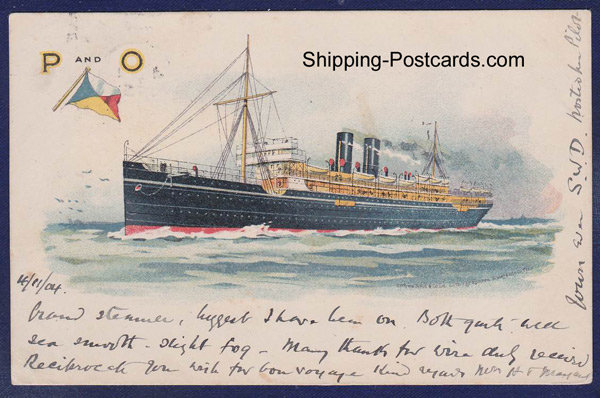 P AND O
Shipping-Postcards.com
16/11/04.
Grand steamer, biggest I have been on. Both quite well
sea smooth - slight fog - Many thanks for wire duly received
Reciprocate your wish for bon voyage Kind regards Mrs H F
Yours ever S.W.D.